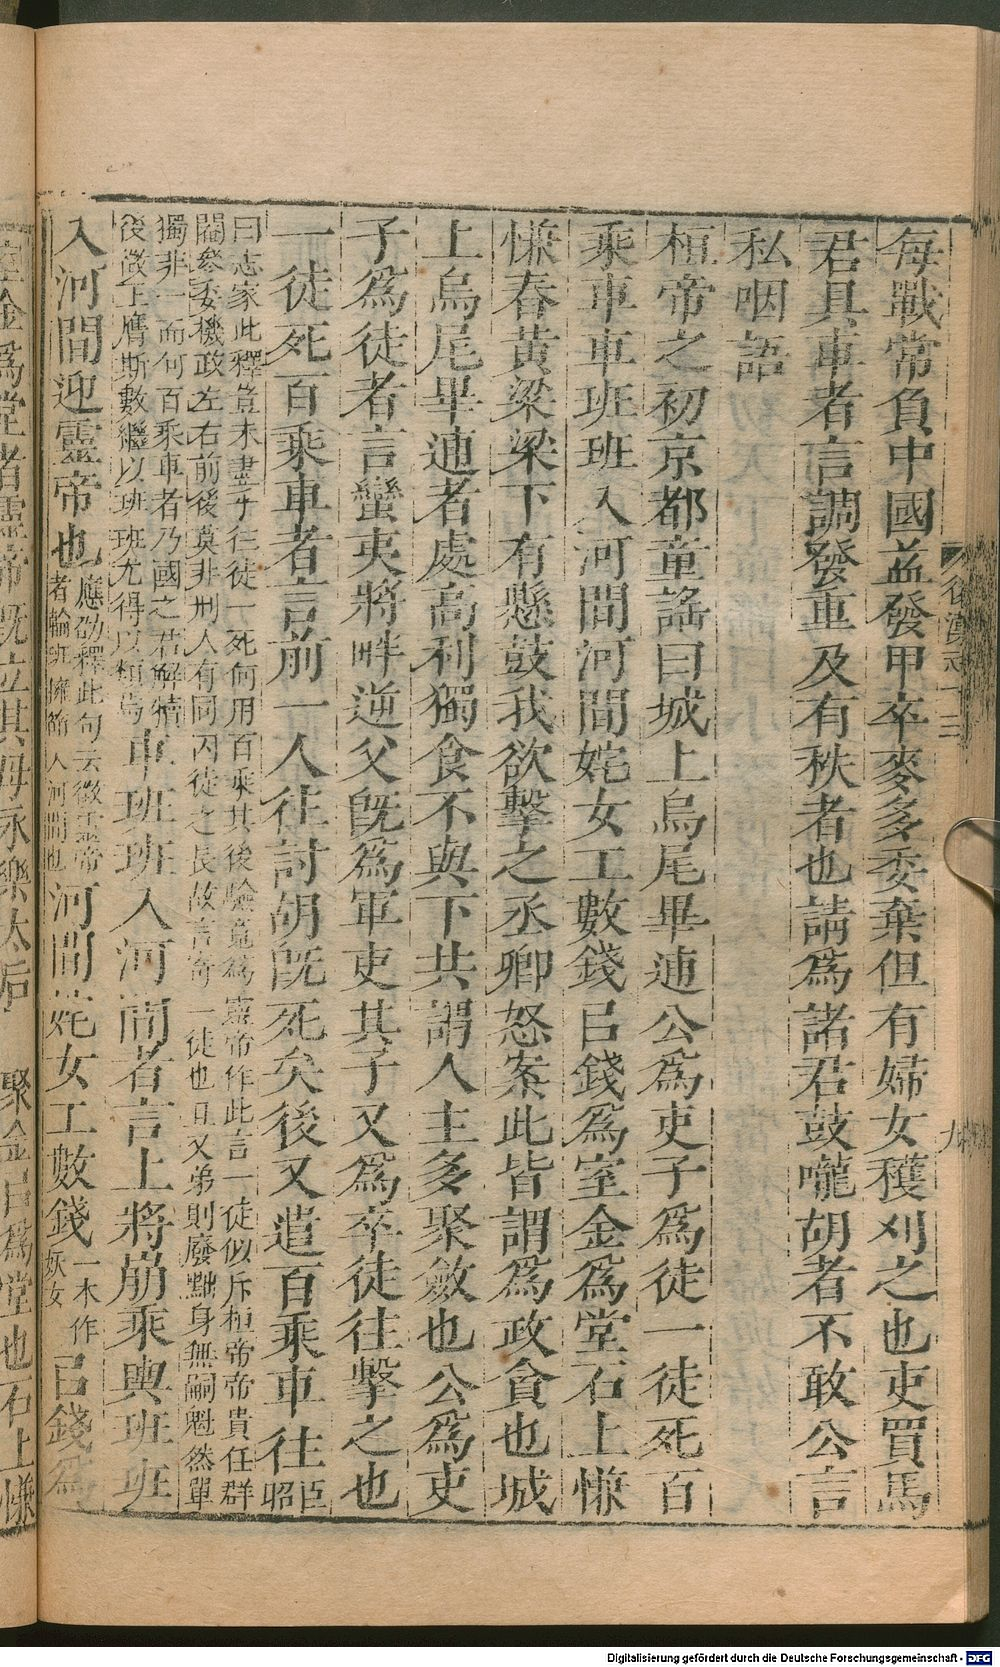 每戰常負中國益發甲卒麥多委棄但有婦女穫刈之也吏買馬
君具車者言調發重及有秩者也請為諸君鼓嚨胡者不敢公言
私咽語
桓帝之初京都童謠曰城上烏尾畢逋公為吏子為徒一徒死百
乘車車班班入河間河間姹女工數錢㠯錢為室金為堂石上慊
慊舂黃梁梁下有懸鼓我欲擊之丞卿怒案此皆謂為政貪也城
上烏尾畢逋者處高利獨食不與下共謂人主多聚斂也公為吏
子為徒者言蠻夷將畔逆父旣為軍吏其子又為卒徒往擊之也
一徒死百乘車者言前一人往討胡旣死矣後又遣百乘車往臣昭
曰志家此釋豈未盡乎徃徒一死何用百乘其後驗竟為靈帝作此言一徒似斥桓帝帝貴任群
閹參委機政左右前後莫非刑人有同囚徒之長故言寄一徒也且又弟則廢黜身無嗣魁然單
獨非一而何百乘車者乃國之君解犢
後徵正膺斯數繼以班班尤得以類焉
車班班入河間者言上將崩乘輿班班
入河間迎靈帝也應劭釋此句云徵靈帝者輪班擁節入河間也河間姹女工數錢一本作妖女㠯錢為
室金為堂者靈帝旣立其母永樂太后 聚金㠯為堂也石上慊
後漢志十三
九
Digitalisierung gefördert durch die Deutsche Forschungsgemeinschaft - DFG